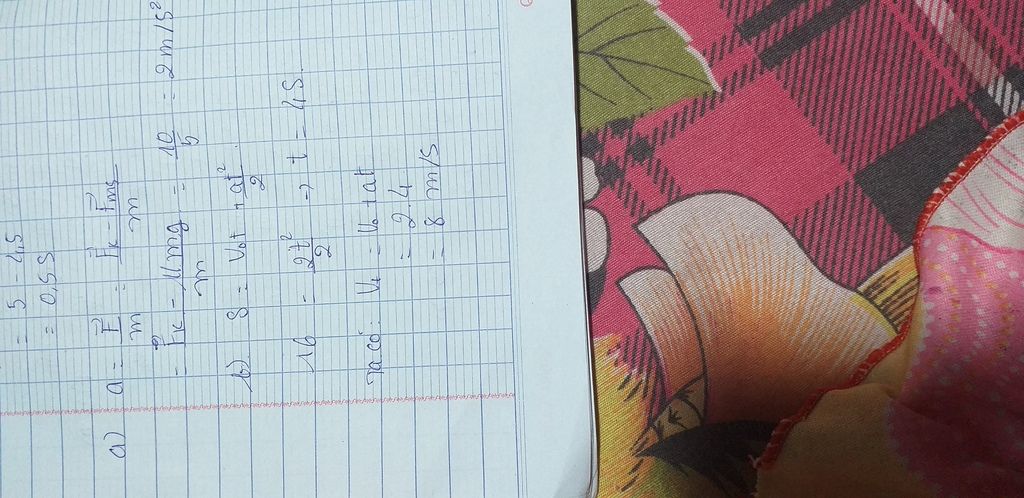 = 5 - 4,5
= 0,5 S
a) a = F/m = (Fk - Fms)/m
= (Fk - μmg)/m = 10/5 = 2 m/s²
b) S = V₀t + at²/2
16 = 2t²/2 → t = 4S.
Ta có: Vt = V₀ + at
= 2.4
= 8 m/s